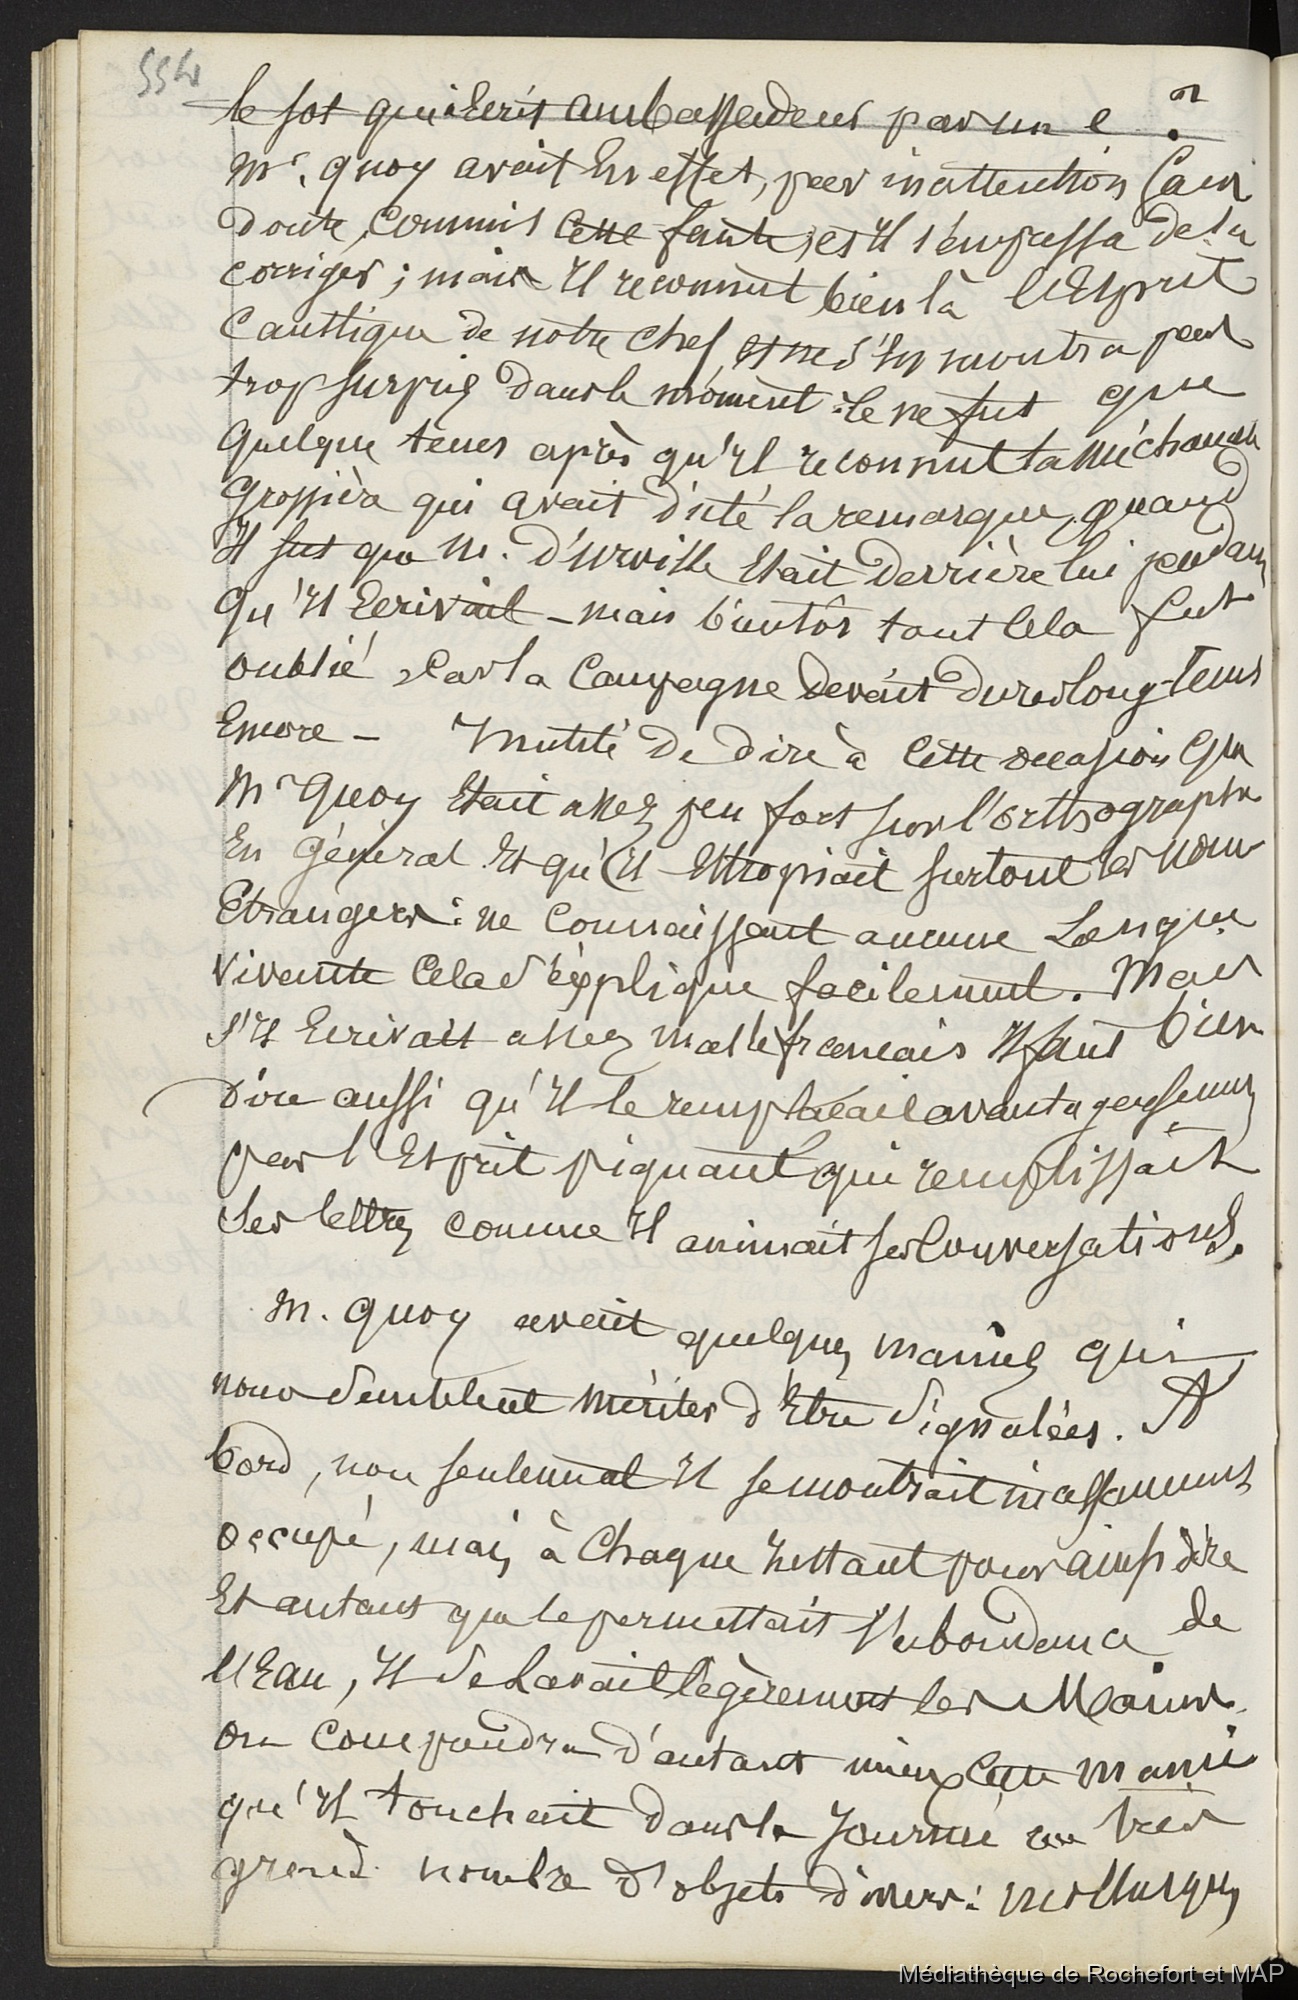 554
le sot qui écrit ambassadeur par un e ?
Mr. Quoy avait en effet, par inattention sans
doute, commis cette faute, et il s'empressa de la
corriger ; mais il reconnut bien là l'esprit
caustique de notre chef, et ne s'en montra pas
trop surpris dans le moment : ce ne fut que
quelque tems après qu'il reconnut la méchanceté
grossière qui avait dicté la remarque, quand
il sut que M. d'Urville était derrière lui pendant
qu'il écrivait – mais bientôt tout cela fut
oublié, car la campagne devait durer long-tems
encore – Inutile de dire à cette occasion que
Mr Quoy était assez peu fort sur l'orthographe
en général et qu'il estropiait surtout les noms
étrangers : ne connaissant aucune langue
vivante cela s'explique facilement. Mais
s'il écrivait assez mal le français il faut bien
dire aussi qu'il le remplaçait avantageusement
par l'esprit piquant qui remplissait
ses lettres comme il animait ses conversations.
M. Quoy avait quelques manies qui
nous semblent mériter d'être signalées. A
bord, non seulement il se montrait incessamment
occupé, mais à chaque instant pour ainsi dire
et autant que le permettait l'abondance de
l'eau, il se lavait légèrement les mains.
on comprendra d'autant mieux cette manie
qu'il touchait dans la journée un très
grand nombre d'objets divers : mollusques,
Médiathèque de Rochefort et MAP